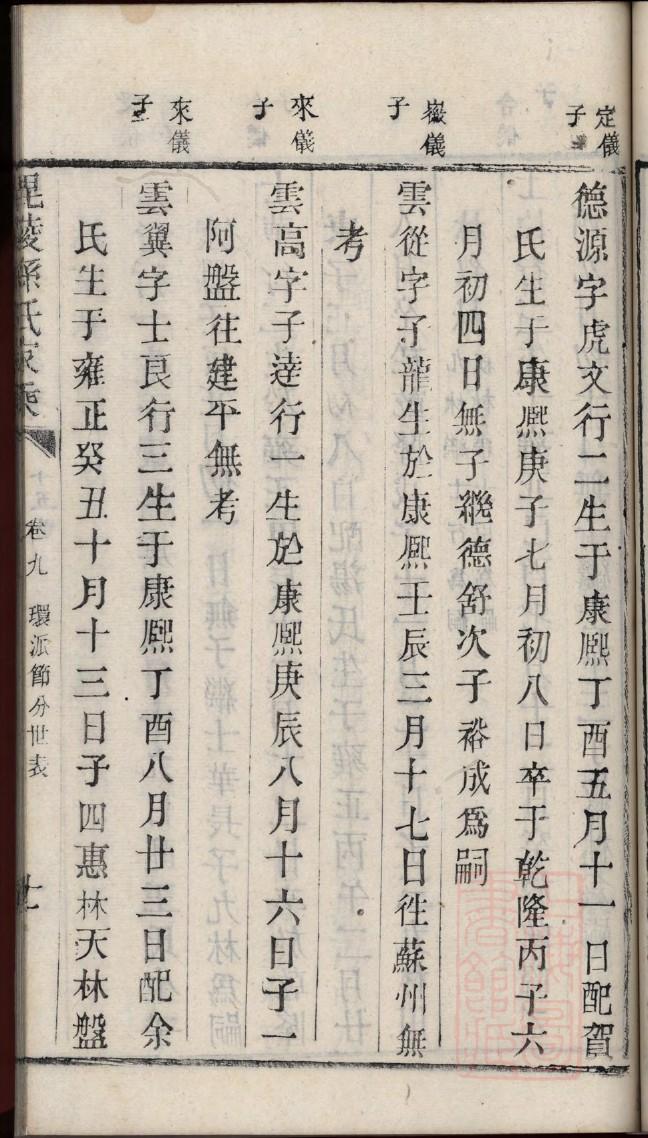 定儀
子
德源字虎文行二生于康熙丁酉五月十一日配賀
氏生于康熙庚子七月初八日卒于乾隆丙子六
月初四日無子繼德舒次子裕成爲嗣
嶽儀
子
雲從字子龍生於康熙壬辰三月十七日徃蘇州無
考
來儀
子
雲高字子逹行一生於康熙庚辰八月十六日子一
阿盤徃建平無考
來儀
子
雲翼字士良行三生于康熙丁酉八月廿三日配余
氏生于雍正癸丑十月十三日子四惠林天林盤
毘陵孫氏家乘
卷九 環派節分世表